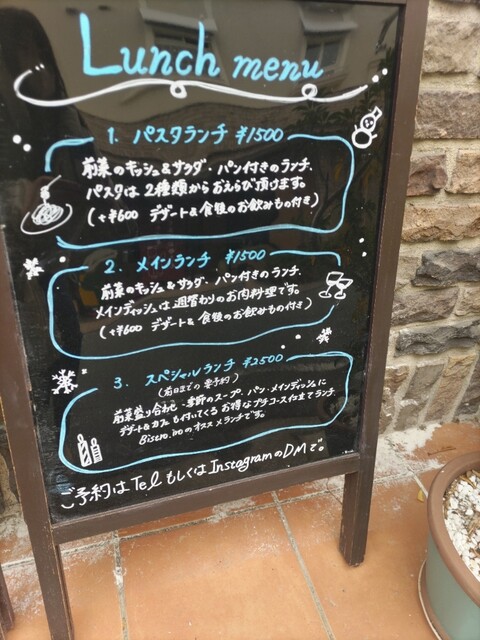 Lunch menu
1. パスタランチ ¥1500
前菜のキッシュ&サラダ・パン付きのランチ、
パスタは2種類からおえらび頂けます。
(+¥600 デザート&食後のお飲みもの付き)
2. メインランチ ¥1500
前菜のキッシュ&サラダ・パン付きのランチ、
メインディッシュは週替わりのお肉料理です。
(+¥600 デザート&食後のお飲みもの付き)
3. スペシャルランチ ¥2500
(前日までの要予約)
前菜盛り合わせ・季節のスープ、パン・メインディッシュに
デザート&カフェも付いてくるお得なプチコース仕立てランチ
Bistro.iroのオススメランチです。
ご予約はTelもしくはInstagramのDMで。